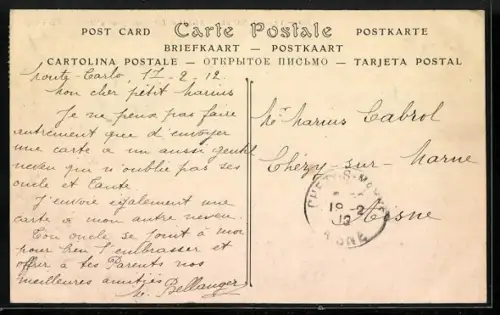 POST CARD Carte Postale POSTKARTE
BRIEFKAART — POSTKAART
CARTOLINA POSTALE — ОТКРЫТОЕ ПИСЬМО — TARJETA POSTAL
Monte-Carlo, 17-2, 12
Mon cher petit Marius
Je ne peux pas faire
autrement que d'envoyer
une carte à un aussi gentil
neveu qui n'oublie pas ses
oncle et tante.
J'envoie également une
carte à mon autre neveu.
Ton oncle se joint à moi
pour bien t'embrasser et
offrir à tes Parents nos
meilleures amitiés
M. Bellanger
Mr Marius Cabrol
Chézy-sur-Marne
Aisne
CHEZY-S-MARNE
19-2
12
AISNE